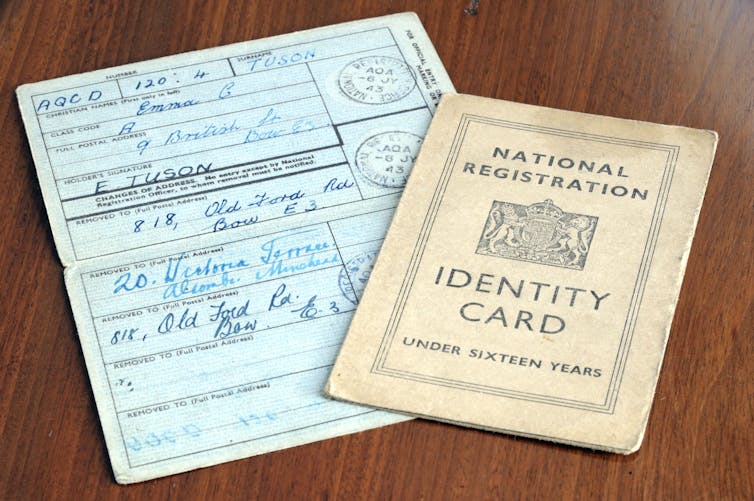 NUMBER
SURNAME
AQCD 120:4 TUSON
CHRISTIAN NAMES (First only in full)
Emma C
CLASS CODE A
FULL POSTAL ADDRESS
9 British St
Bow E3
HOLDER'S SIGNATURE
E. TUSON
CHANGES OF ADDRESS. No entry except by National
Registration Officer, to whom removal must be notified.
REMOVED TO (Full Postal Address)
818, Old Ford Rd
Bow E3
REMOVED TO (Full Postal Address)
20. Victoria Terrace
Alcombe, Minehead
REMOVED TO (Full Postal Address)
818, Old Ford Rd.
Bow. E.3
REMOVED TO (Full Postal Address)
REMOVED TO (Full Postal Address)
FOR OFFICIAL ENTRY
MARKING OR
NATIONAL REGISTRATION OFFICE
AQA
-6 JY
43
AQA
-6 JY
43
NATIONAL
REGISTRATION
IDENTITY
CARD
UNDER SIXTEEN YEARS